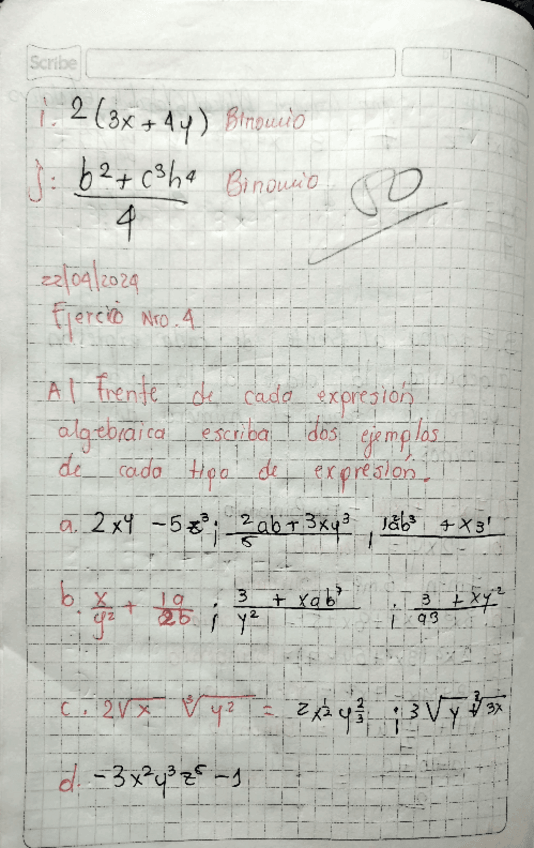 Scribe
i. 2(3x + 4y) Binomio
j: b² + c³h⁴ / 4 Binomio
50
22/04/2024
Ejercio Nro. 4
Al frente de cada expresión
algebraica escriba dos ejemplos
de cada tipo de expresión.
a. 2xy - 5z³; 2/5 ab + 3xy³
b. x/y² + 1a/2b ; 3/y² + xab³ ; 3/a3 + xy²
c. 2√x ∛y² = 2x^½ y^⅔ ; 3√y
d. -3x²y³z⁵ - 1